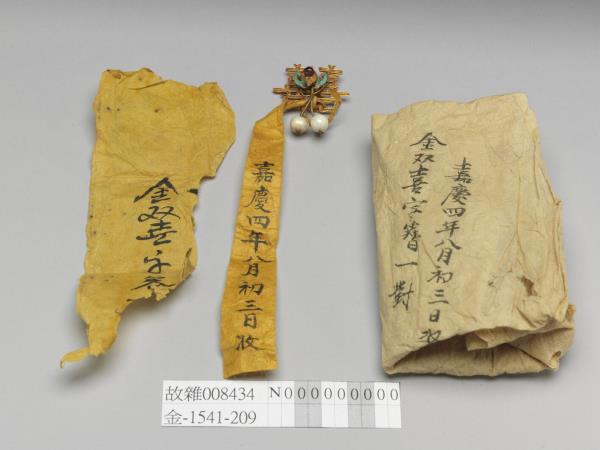 金双喜字
嘉慶四年八月初三日收
嘉慶四年八月初三日收
金双喜字簪一對
故雜008434
N000000000
金-1541-209